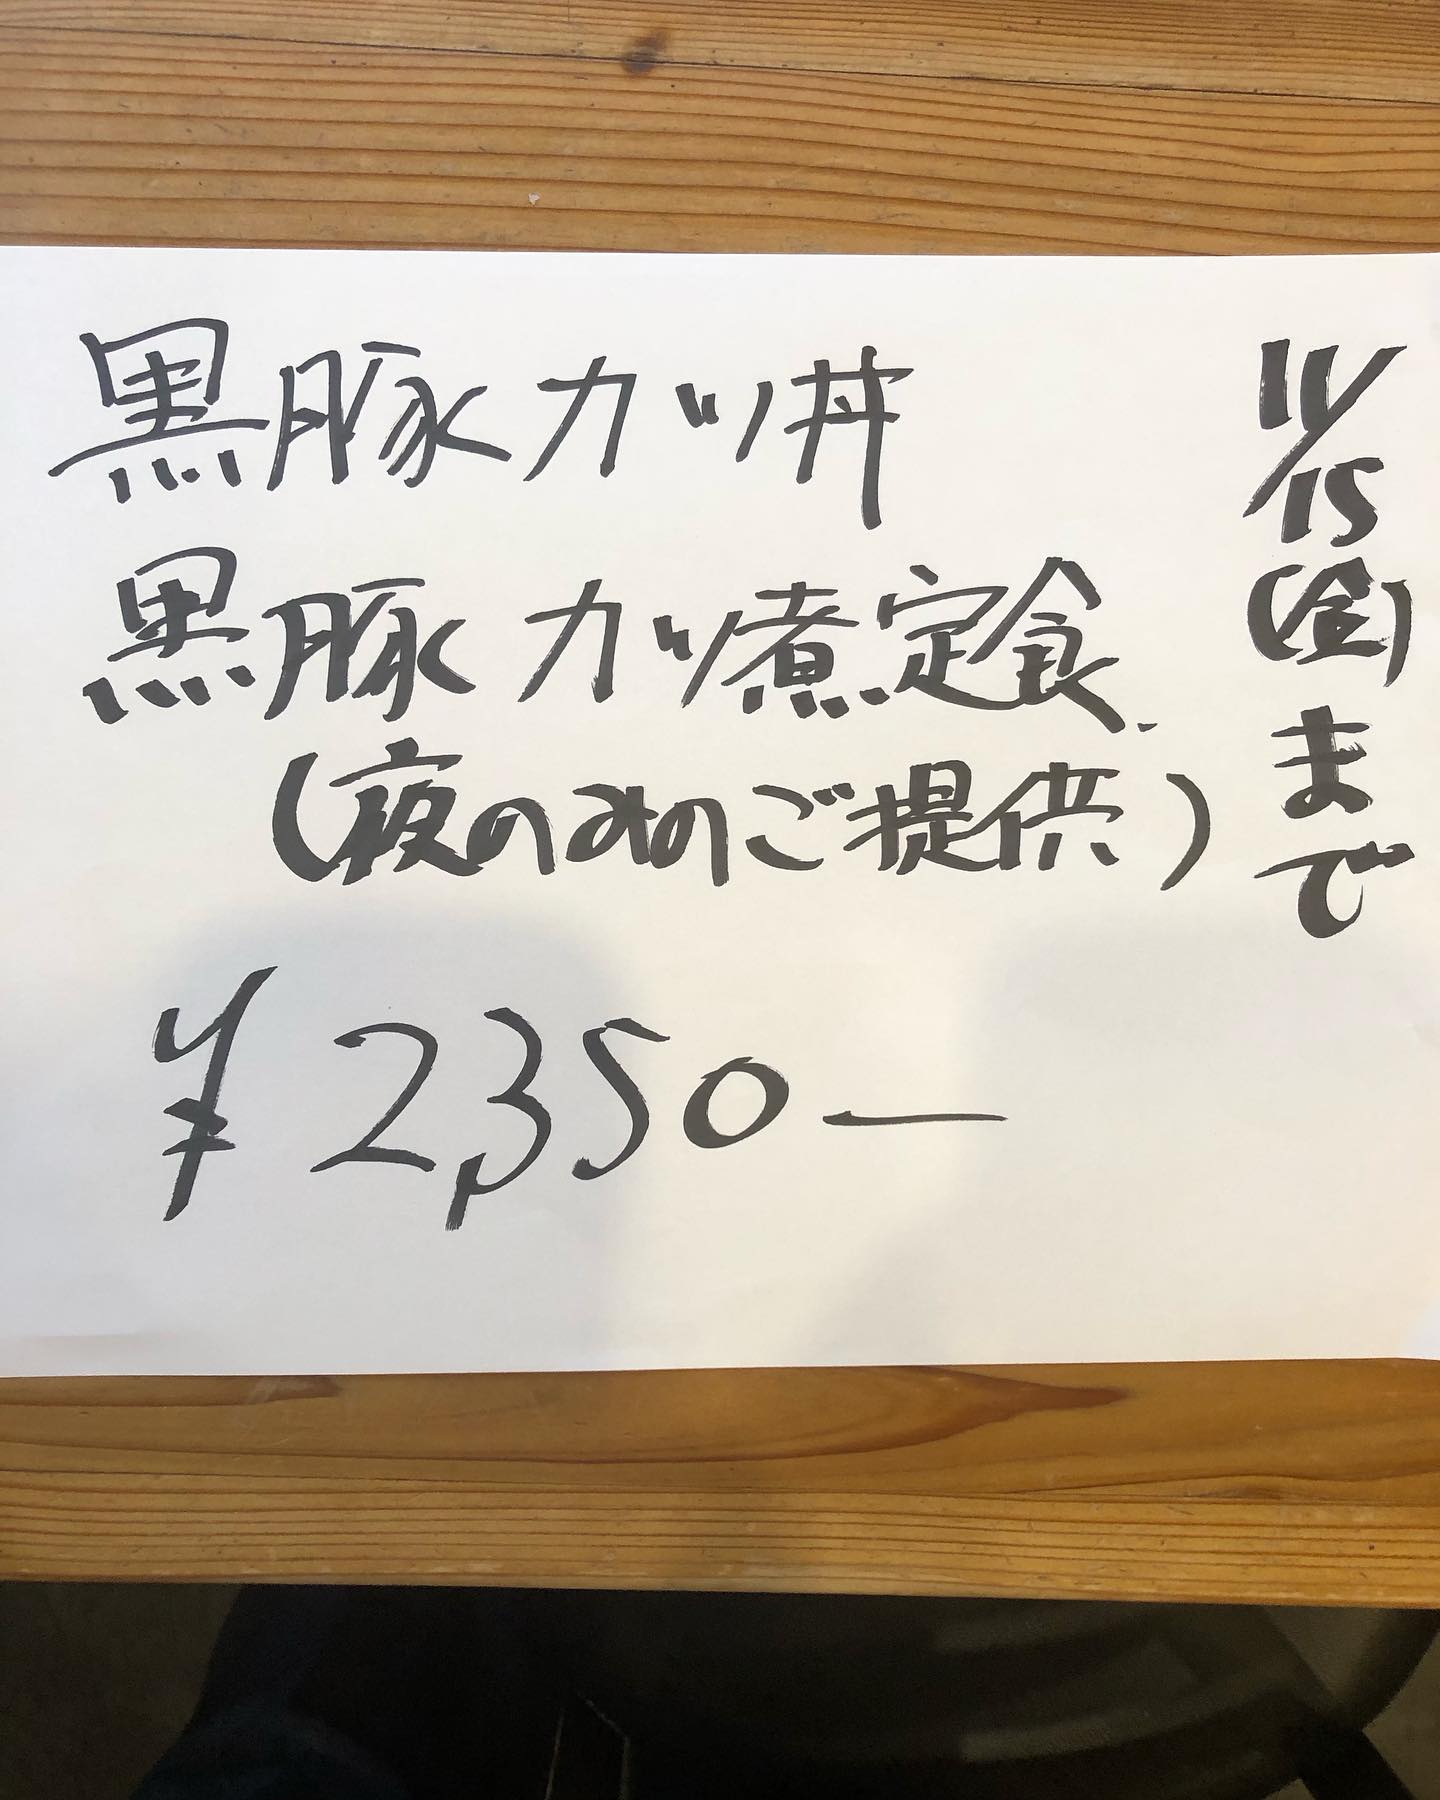 黒豚カツ丼
黒豚カツ煮定食
(夜のみのご提供)
¥2,350ー
11/15(金)まで